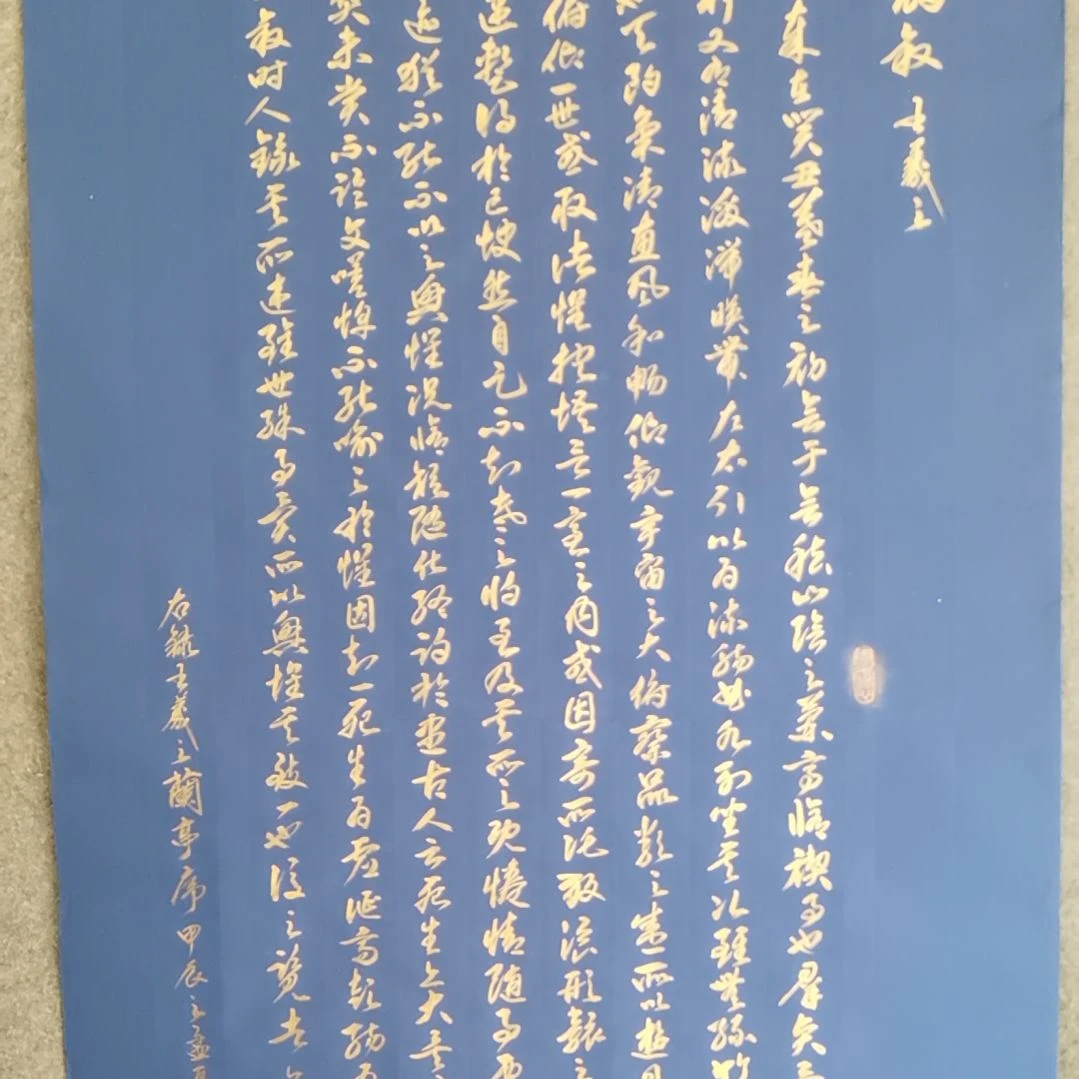 敘 王羲之
年在癸丑暮春之初會于會稽山陰之蘭亭脩禊事也羣賢
又有清流激湍映帶左右引以為流觴曲水列坐其次雖無絲竹
也天朗氣清惠風和暢仰觀宇宙之大俯察品類之盛所以遊目
俯仰一世或取諸懷抱悟言一室之內或因寄所託放浪形骸之
遇暫得於己怏然自足不知老之將至及其所之既惓情隨事
迹猶不能不以之興懷況脩短隨化終期於盡古人云死生亦大矣
契未嘗不臨文嗟悼不能喻之於懷固知一死生為虛誕齊彭殤為
敘時人錄其所述雖世殊事異所以興懷其致一也後之覽者
右錄王羲之蘭亭序甲辰之孟夏